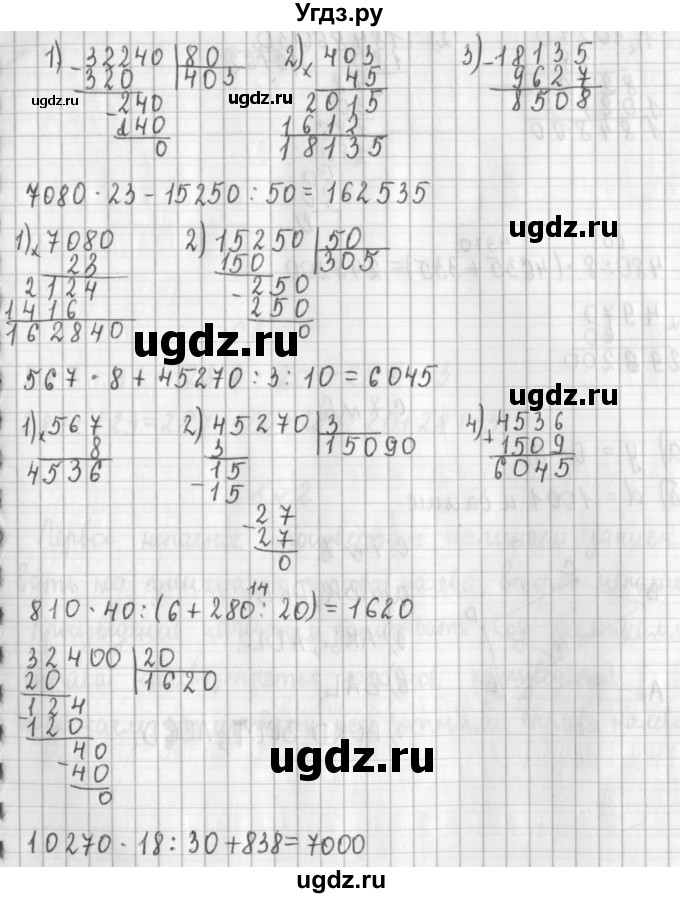 Угдз.ру
1) 32240 | 80   2) 403   3) 18135
- 320 | 403   × 45   - 9627
- 240   2015   8508
140   1612
0   18135
ugdz.ru ugdz.ru
ugdz.ru
7080 · 23 - 15250 : 50 = 162535
1) × 7080   2) 15250 | 50
23   150 | 305
2124   - 250
1416   250
162840   0
ugdz.ru ugdz.ru
567 · 8 + 45270 : 3 : 10 = 6045
1) × 567   2) 45270 | 3   4) + 4536
8   3 | 15090   1509
4536   - 15   6045
15
- 27
27
0
ugdz.ru
14
810 · 40 : (6 + 280 : 20) = 1620
32400 | 20
20 | 1620
- 124
120
- 40
40
0
ugdz.ru ugdz.ru
10270 · 18 : 30 + 838 = 7000
ugdz.ru ugdz.ru